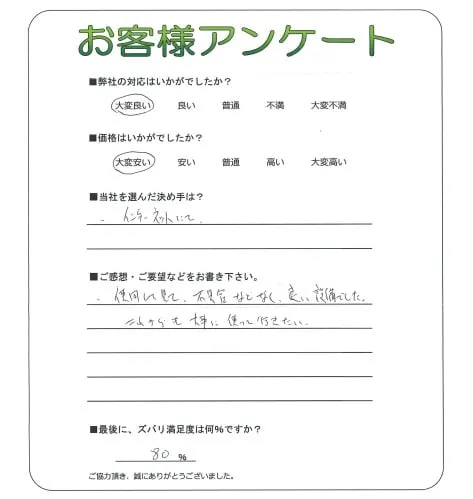 お客様アンケート
■弊社の対応はいかがでしたか？
大変良い 良い 普通 不満 大変不満
■価格はいかがでしたか？
大変安い 安い 普通 高い 大変高い
■当社を選んだ決め手は？
・ インターネットにて。
■ご感想・ご要望などをお書き下さい。
・ 使用して見て、不具合などなく、良い設備でした。
これからも大事に使って行きたい。
■最後に、ズバリ満足度は何%ですか？
80 %
ご協力頂き、誠にありがとうございました。